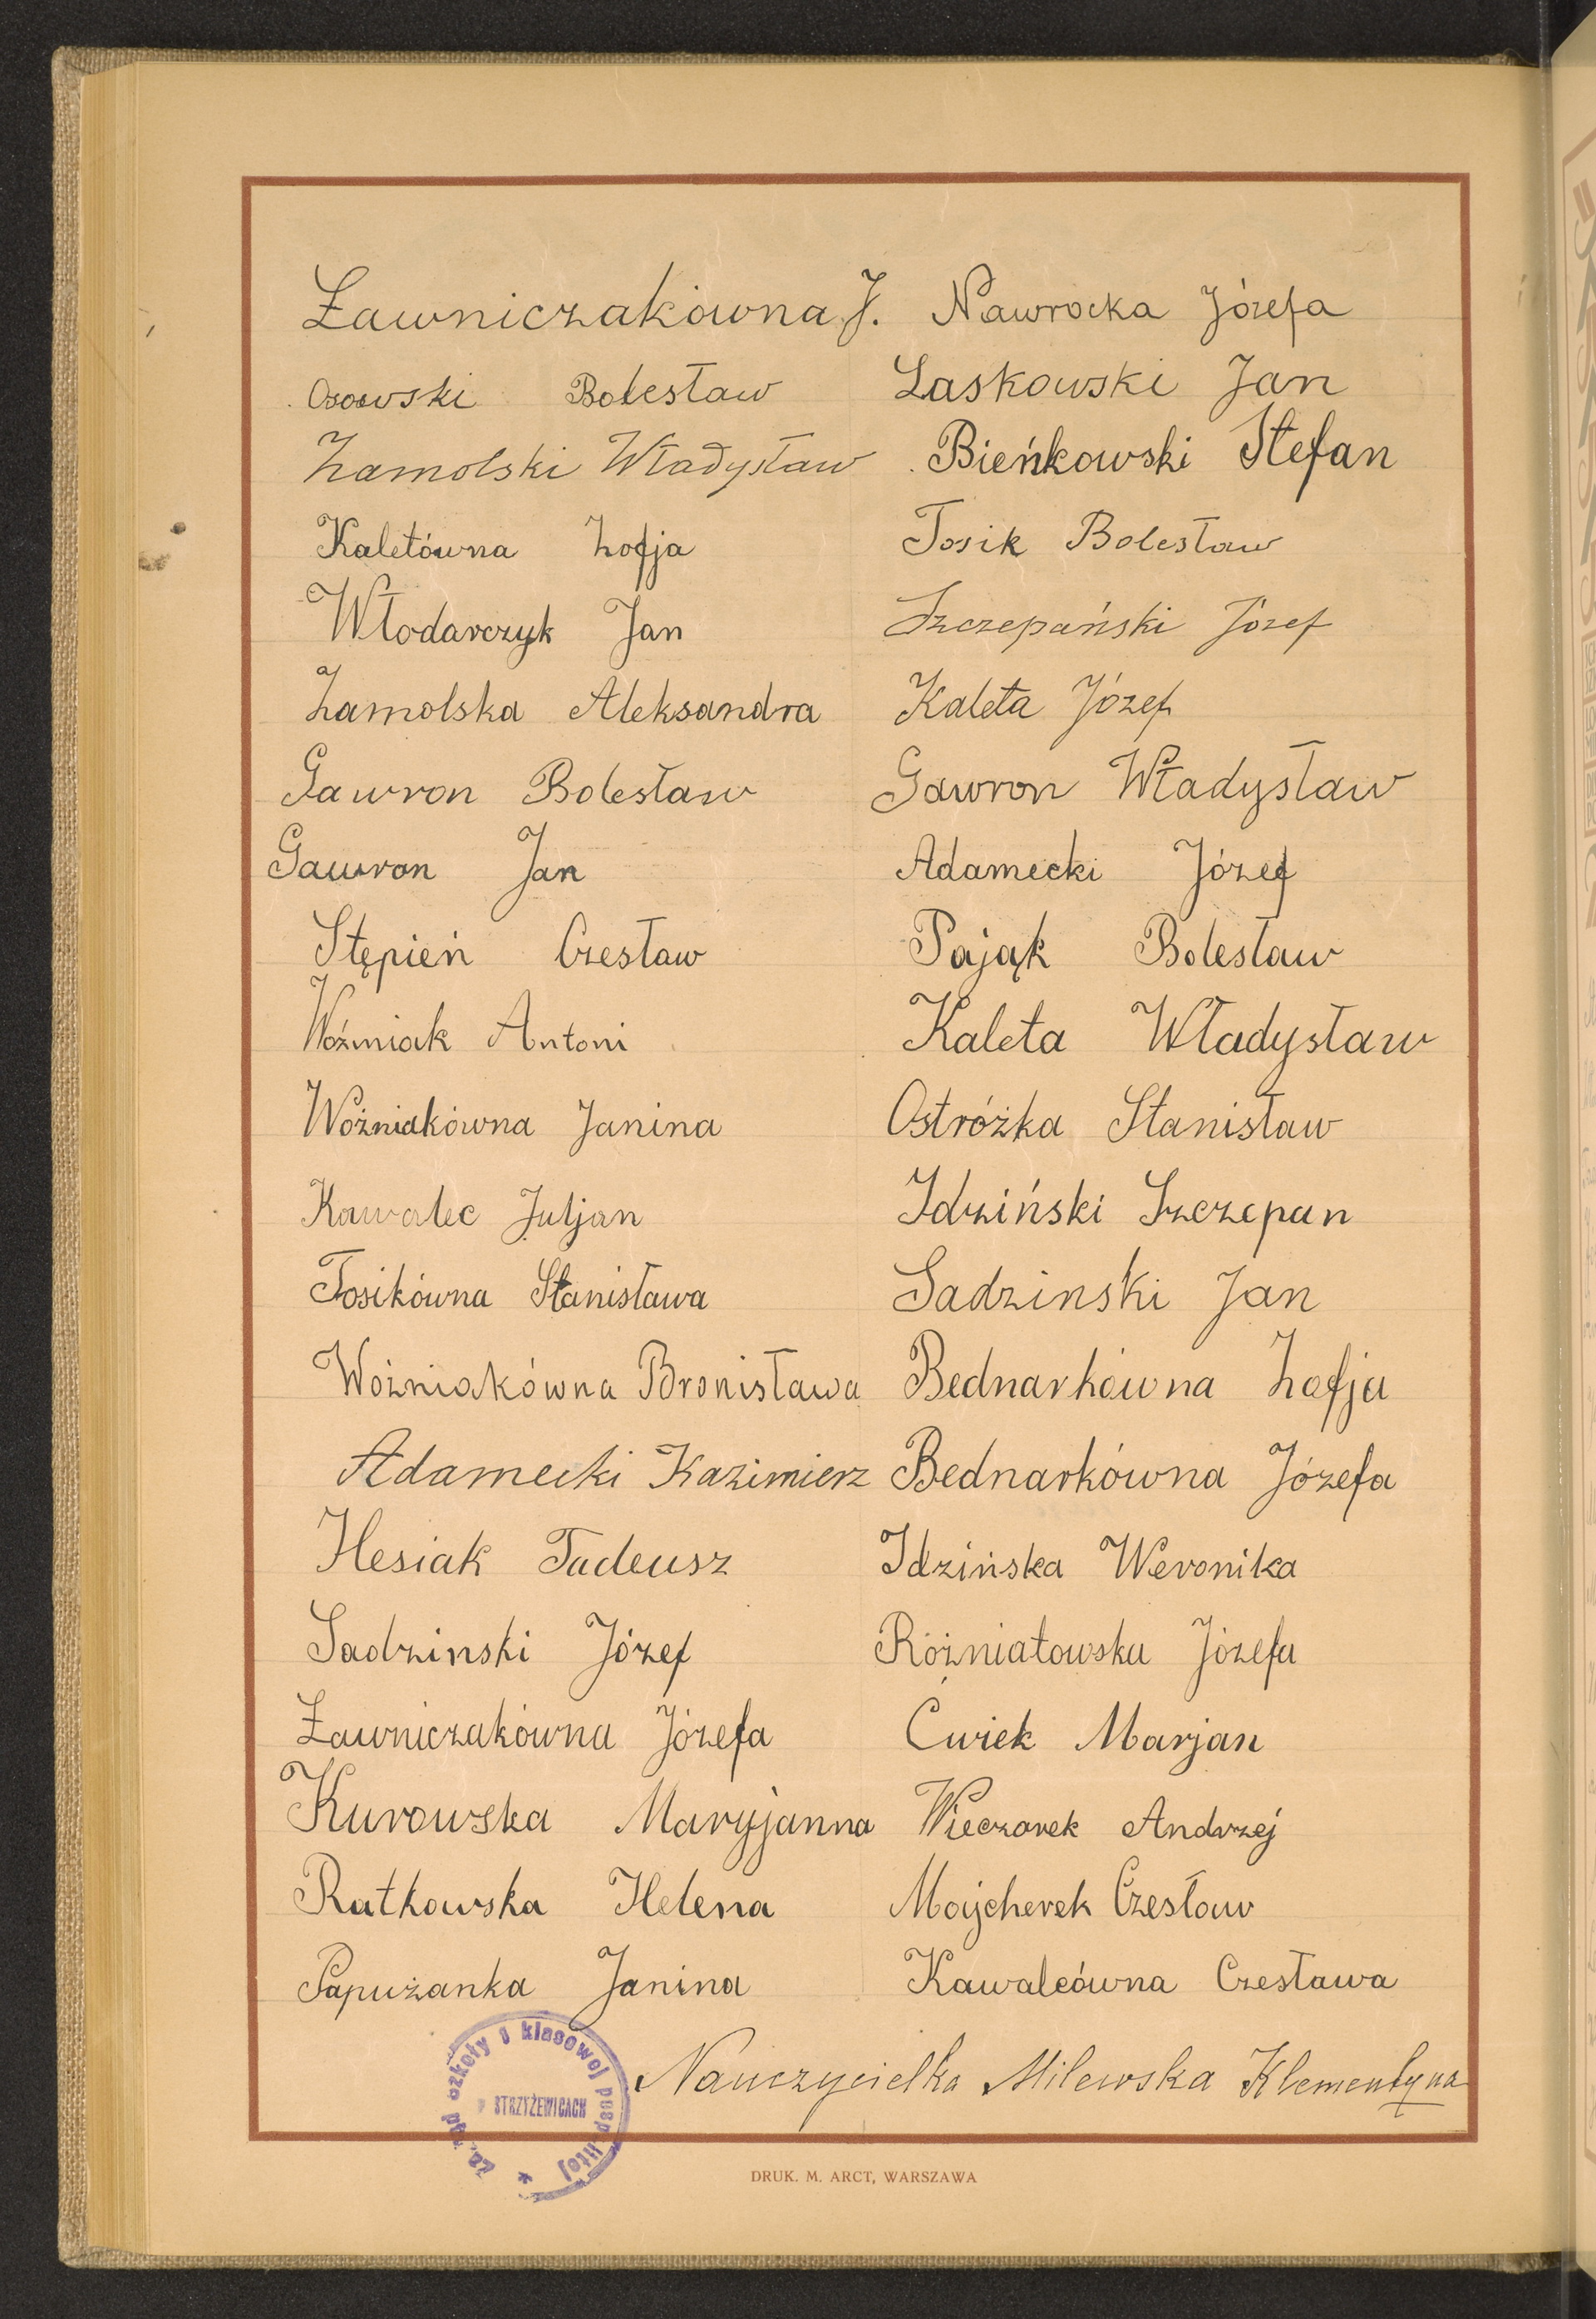 Ławniczakówna J.
Osowski Bolesław
Zamolski Władysław
Kaletówna Zofja
Włodarczyk Jan
Zamolska Aleksandra
Gawron Bolesław
Gawron Jan
Stępień Czesław
Woźniak Antoni
Woźniakówna Janina
Kawalec Juljan
Tosikówna Stanisława
Woźniakówna Bronisława
Adamecki Kazimierz
Hesiak Tadeusz
Sadzinski Józef
Ławniczakówna Józefa
Kurowska Maryjanna
Ratkowska Helena
Papużanka Janina
Nawrocka Józefa
Laskowski Jan
Bieńkowski Stefan
Tosik Bolesław
Szczepański Józef
Kaleta Józef
Gawron Władysław
Adamecki Józef
Pająk Bolesław
Kaleta Władysław
Ostróżka Stanisław
Idziński Szczepan
Sadzinski Jan
Bednarkówna Zofja
Bednarkówna Józefa
Idzińska Weronika
Rózniatowska Józefa
Cwiek Marjan
Wieczorek Andrzej
Majcherek Czesław
Kawalcówna Czesława
Nauczycielka Milewska Klementyna
szkoły klasowej
STRZYŻEWICACH
DRUK. M. ARCT, WARSZAWA